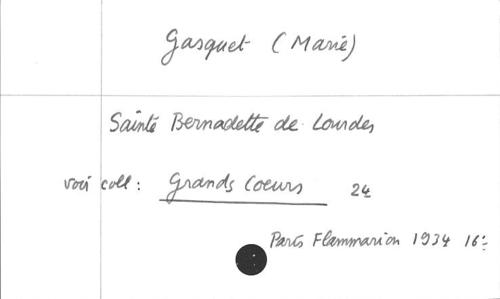 Gasquet (Marie)
Sainte Bernadette de Lourdes
voir coll: Grands Coeurs 24
Paris Flammarion 1934 16º